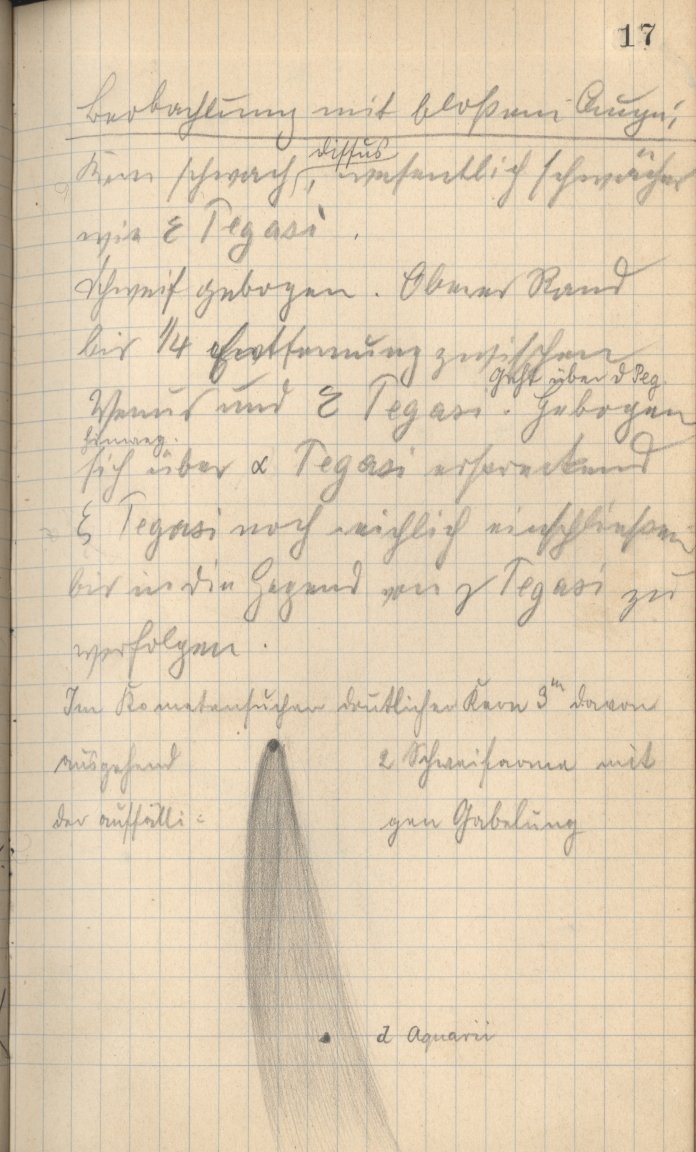 17
Beobachtung mit bloßem Auge:
diffus
Kern schwach, wesentlich schwächer
wie ε Pegasi.
Schweif gebogen. Oberer Rand
bis 1/4 Entfernung zwischen
geht über θ Peg.
Venus und ε Pegasi. Gebogen
hinweg.
sich über α Pegasi erstreckend
ξ Pegasi noch reichlich einschließend
bis in die Gegend von η Pegasi zu
verfolgen.
Im Kometensucher deutlicher Kern 3ᵐ davon
ausgehend 2 Schweifarme mit
der auffälli= gen Gabelung
d Aquarii